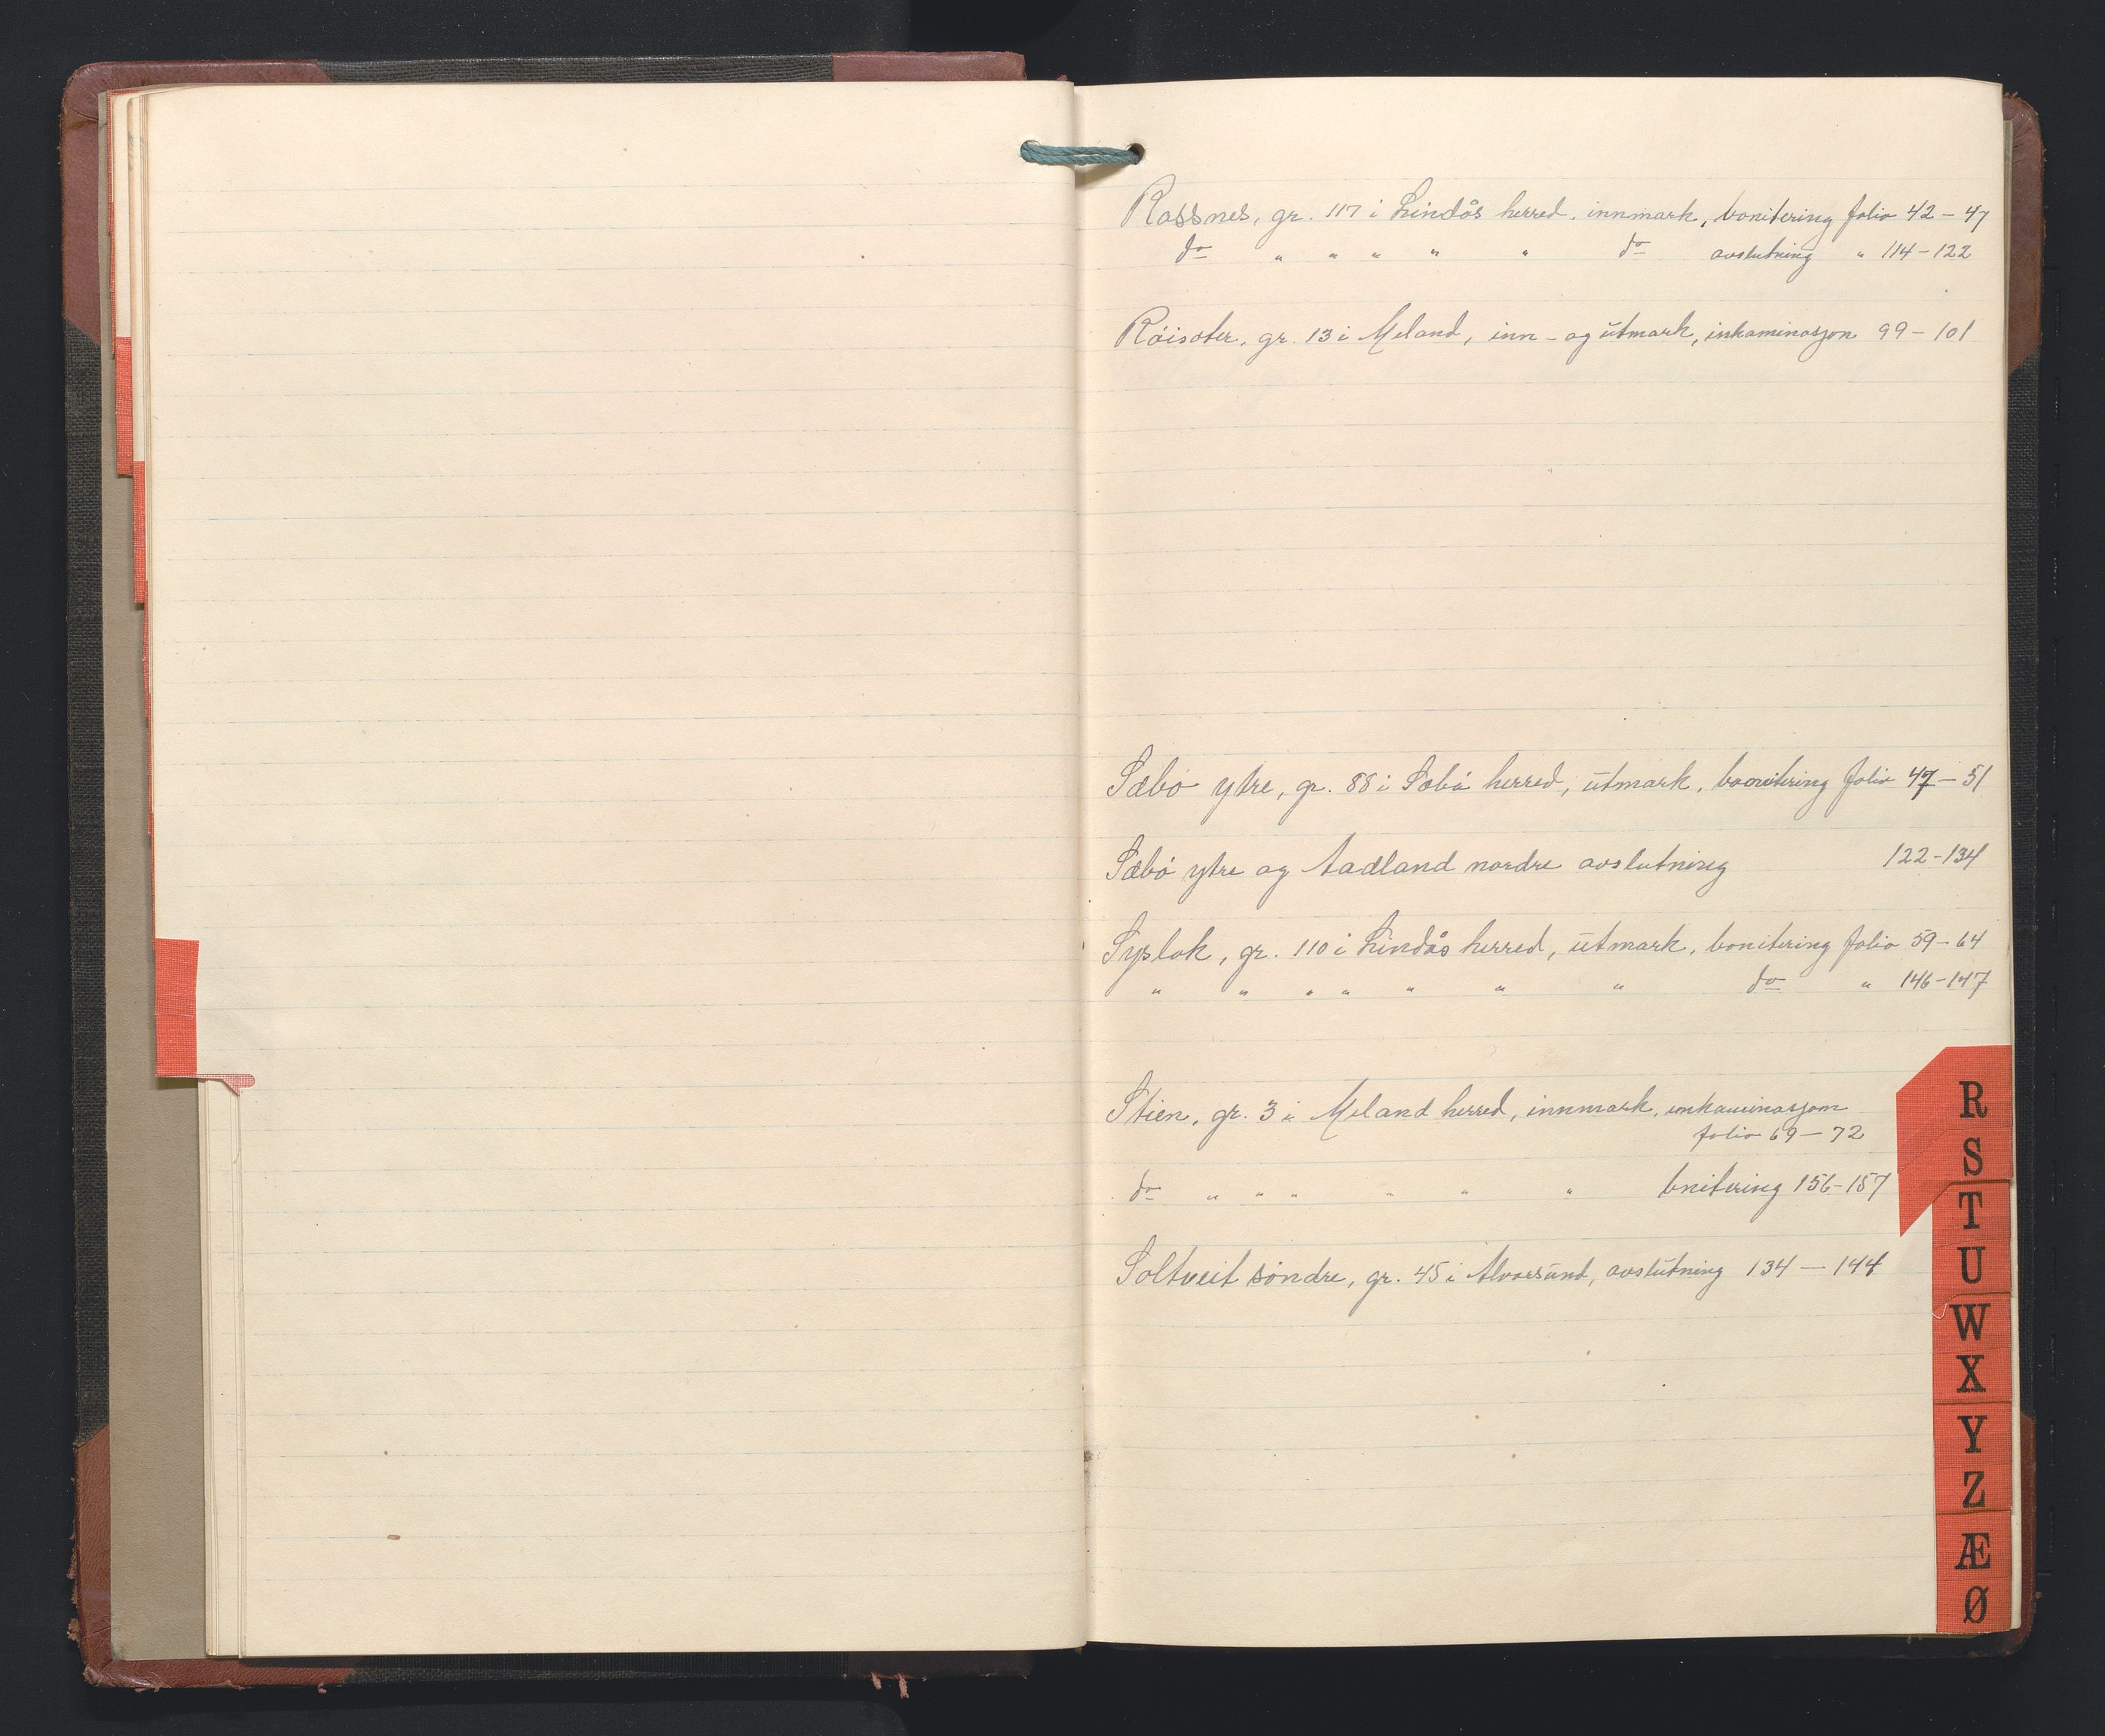 Rossnes, gr. 117 i Lindås herred, innmark, bonitering folio 42 - 47
do " " " " " do avslutning " 114-122
Röiseter, gr. 13 i Meland, inn- og utmark, inkaminasjon 99 - 101
Sæbö ytre, gr. 88 i Sæbö herred, utmark, boonitering folio 47 - 51
Sæbö ytre og Aadland nordre avslutning 122-134
Syslak, gr. 110 i Lindås herred, utmark, bonitering folio 59-64
" " " " " " " do " 146-147
Stien, gr. 3 i Meland herred, innmark, inkaminasjon
folio 69 - 72
do " " " " " " bnitering 156-157
Soltveit söndre, gr. 45 i Alversund, avslutning 134 - 144
R
S
T
U
W
X
Y
Z
Æ
Ø